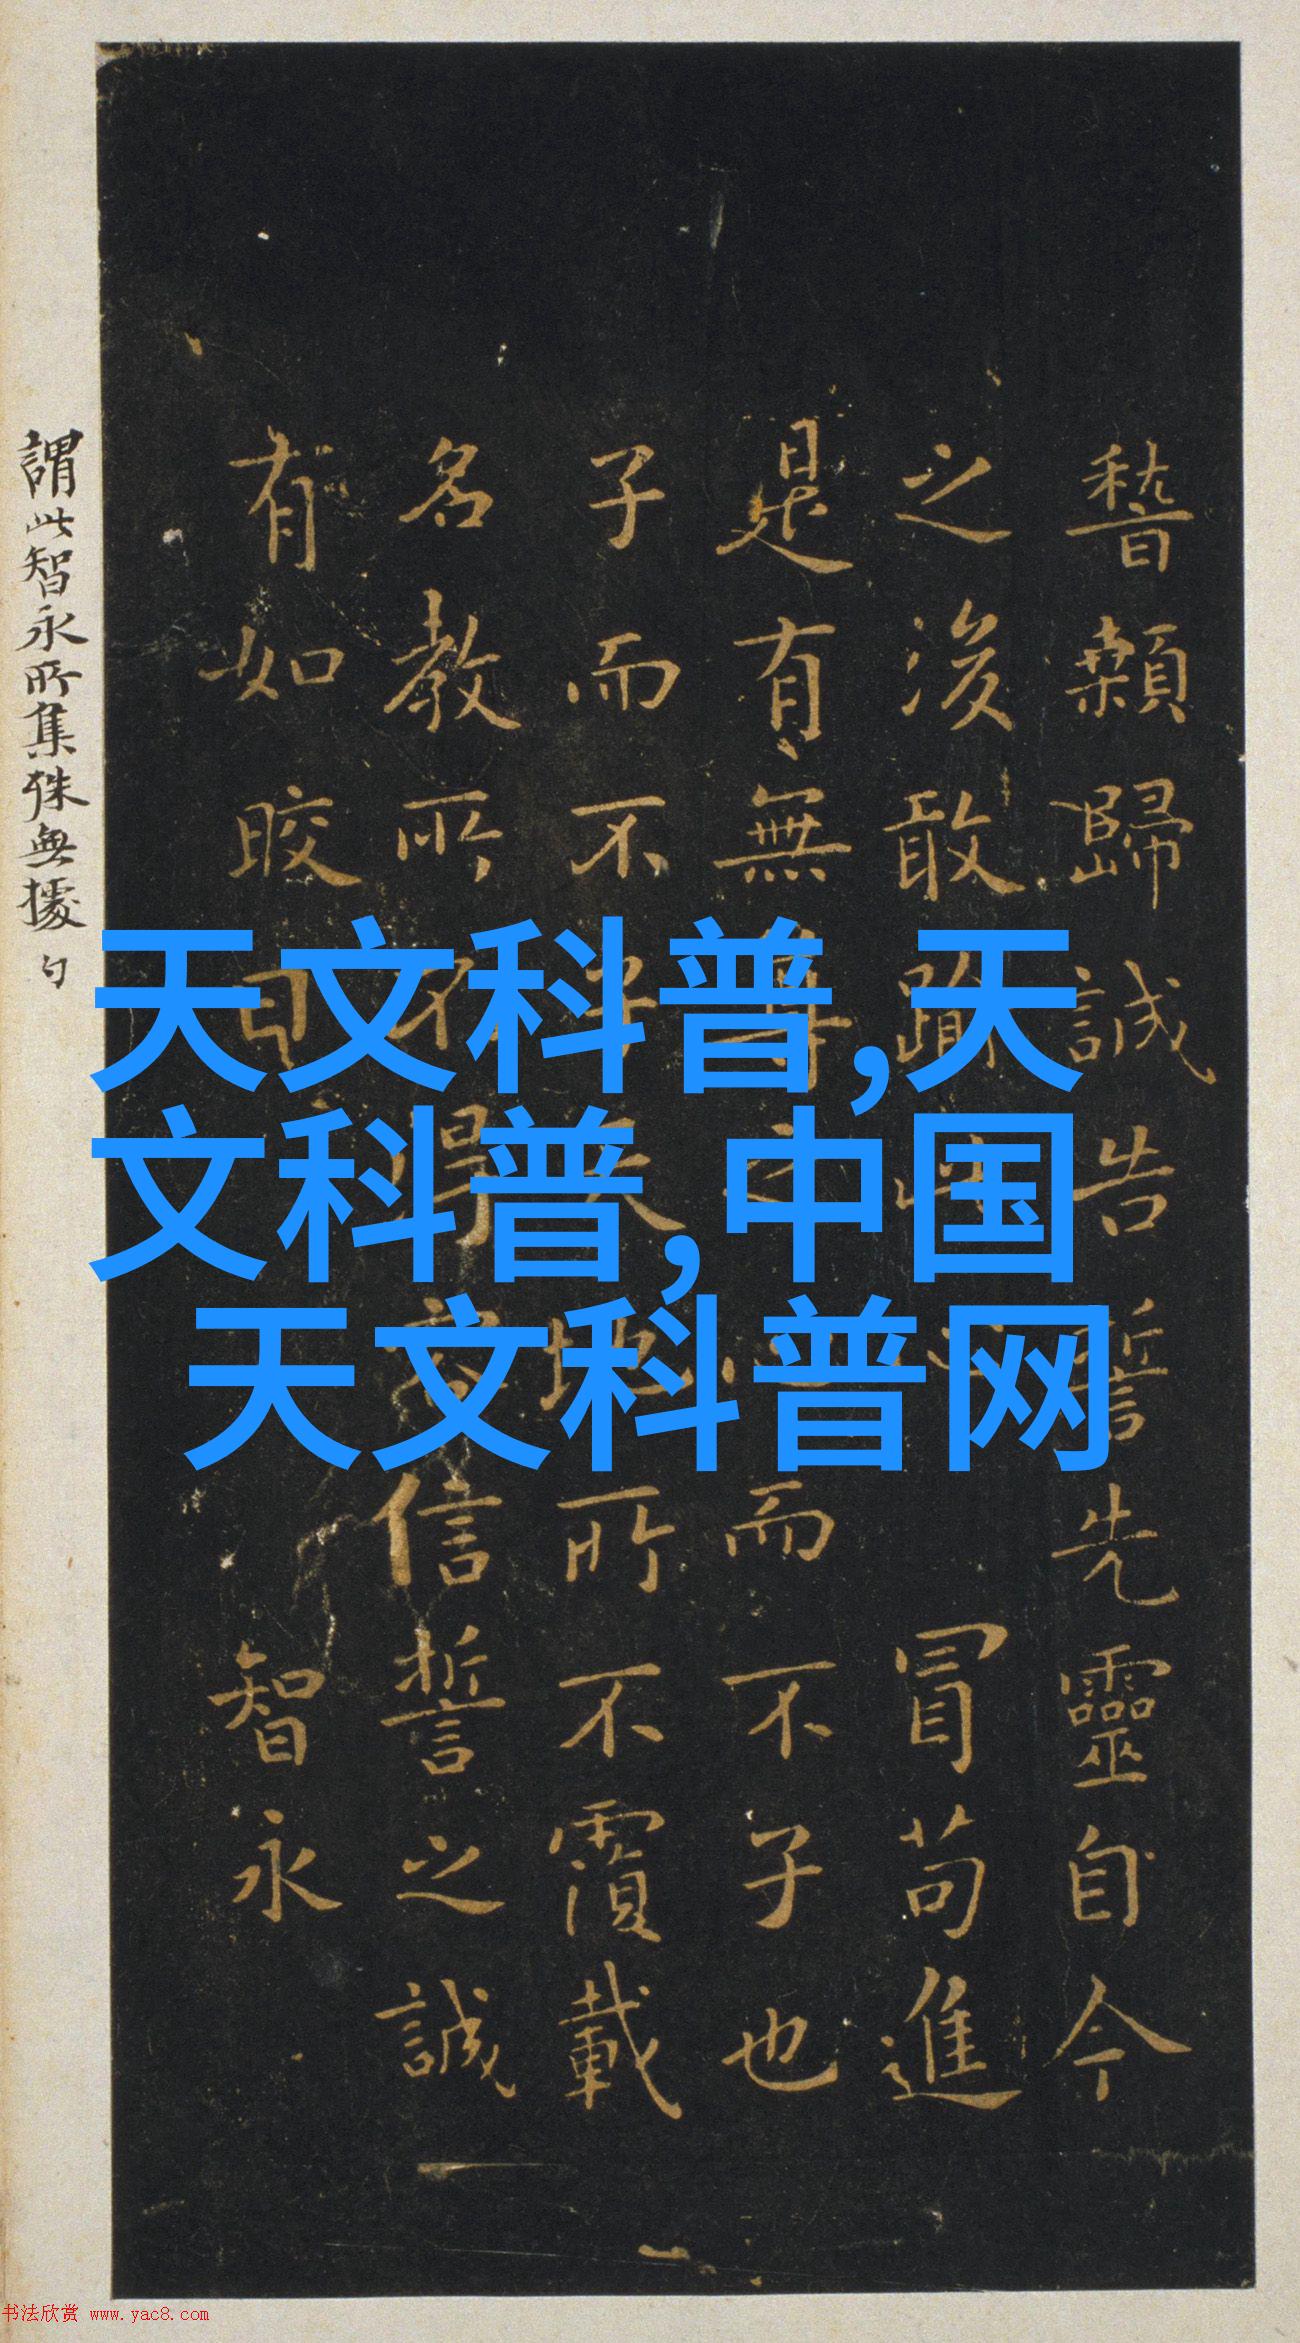 稽顙歸誠告誓先靈自今
之後敢踰此心冒苟進
是有無尊之心而不子也
子而不子天地所不覆載
名教所不得容信誓之誠
有如晈日 智永
謂此智永所集殊無據
天文科普,天
文科普,中国
天文科普网
书法欣赏 www.yac8.com